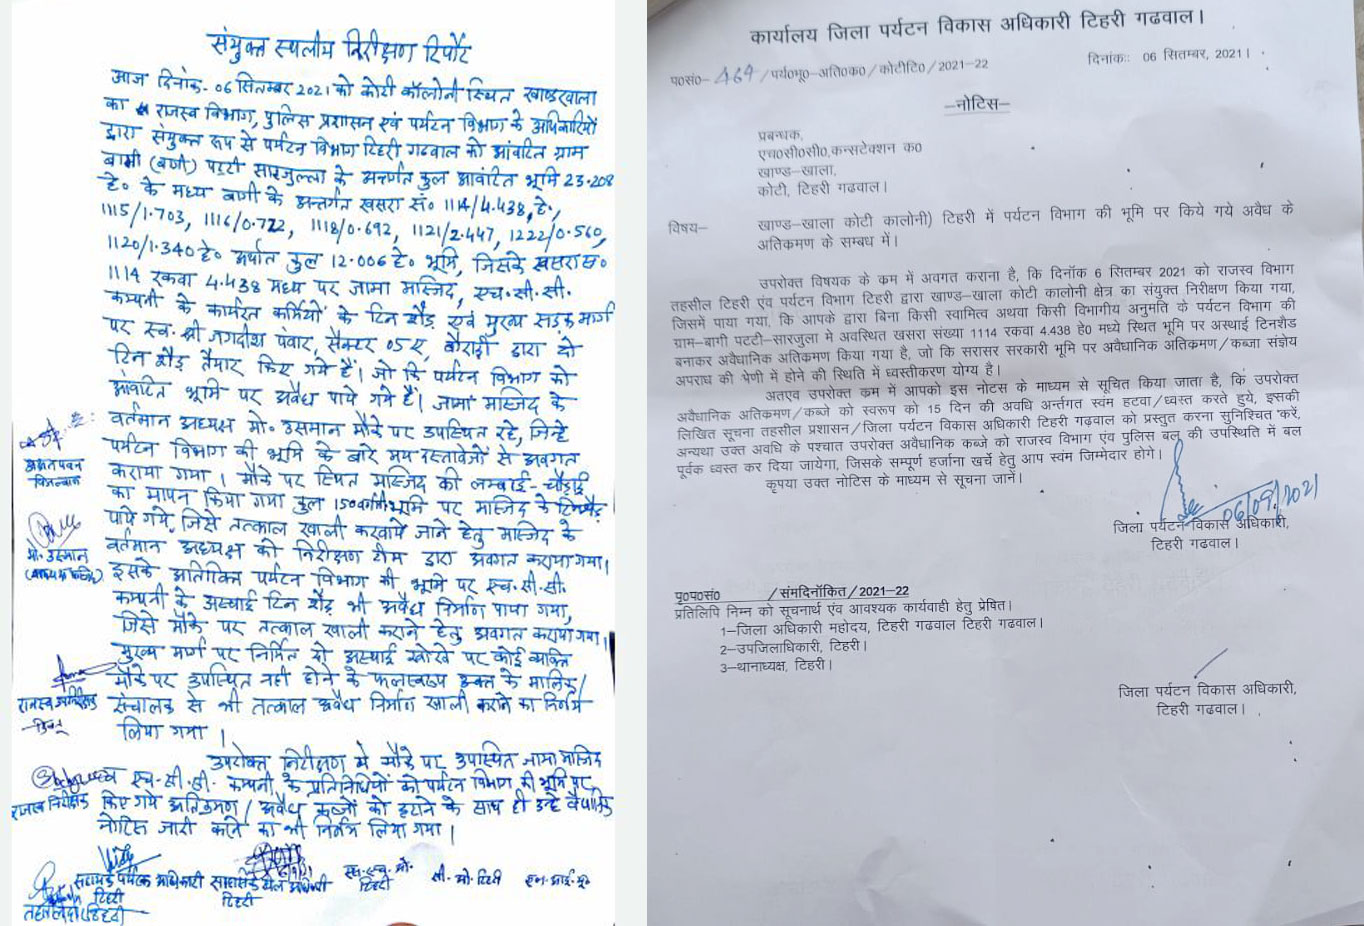 संयुक्त स्थलीय निरीक्षण रिपोर्ट
आज दिनांक- 06 सितम्बर 2021 को कोटी कॉलोनी स्थित खाण्डखाला
का राजस्व विभाग, पुलिस प्रशासन एवं पर्यटन विभाग के अधिकारियों
द्वारा संयुक्त रूप से पर्यटन विभाग टिहरी गढवाल को आंवटित ग्राम
बागी (बागी) पट्टी सारजुल्ला के अन्तर्गत कुल आवंटित भूमि 23.208
हे० के मध्य बागी के अन्तर्गत खसरा सं० 1114/4.438, हे.,
1115/1.703, 1116/0.772, 1118/0.692, 1121/2.447, 1222/0.560,
1120/1.340 हे० अर्थात कुल 12.006 हे० भूमि, जिसके खसरा स०
1114 रकवा 4.438 मध्य पर जामा मस्जिद, एच.सी.सी.
कम्पनी के कार्मरत कर्मियों के टिन शैड एवं मुख्य सड़क मार्ग
पर स्व. श्री जगदीश पंवार, सैक्टर 05 ए, बौराड़ी द्वारा दो
टिन शैड तैयार किए गये हैं। जो कि पर्यटन विभाग को
आंवटित भूमि पर अवैध पाये गये हैं। जामा मस्जिद के
वर्तमान अध्यक्ष मो. उसमान मौके पर उपस्थित रहे, जिन्हे
पर्यटन विभाग की भूमि के बारे मय दस्तावेजों से अवगत
कराया गया। मौके पर स्थित मस्जिद की लम्बाई-चौड़ाई
का मापन किया गया कुल 150 वर्गमी. भूमि पर मस्जिद के टिनशैड
पाये गये, जिसे तत्काल खाली करवाये जाने हेतु मस्जिद के
वर्तमान अध्यक्ष को निरीक्षण टीम द्वारा अवगत कराया गया।
इसके अतिरिक्त पर्यटन विभाग की भूमि पर एच.सी.सी.
कम्पनी के अस्थाई टिन शैड भी अवैध निर्माण पाया गया,
जिसे मौके पर तत्काल खाली कराने हेतु अवगत कराया गया।
मुख्य मार्ग पर निर्मित दो अस्थाई खोखे पर कोई व्यक्ति
मौके पर उपस्थित नही होने के फलस्वरूप उक्त के मालिक/
संचालक से भी तत्काल अवैध निर्माण खाली कराने का निर्णय
लिया गया।
उपरोक्त निरीक्षण मे मौके पर उपस्थित जामा मस्जिद
एवं एच.सी.सी. कम्पनी के प्रतिनिधियों को पर्यटन विभाग की भूमि पर
किए गये अतिक्रमण/अवैध कब्जों को हटाने के साथ ही उन्हे वैधानिक
नोटिस जारी करने का भी निर्णय लिया गया।
मो. उस्मान
राजस्व निरीक्षक
पर्यटक अधिकारी
टिहरी
टिहरी
एस.एच.ओ.
टिहरी
सी.ओ. टिहरी
एल.आई.यू.
कार्यालय जिला पर्यटन विकास अधिकारी टिहरी गढवाल।
प०सं०- 464/पर्य०भू०-अति०क०/कोटीटि०/2021-22
दिनांकः 06 सितम्बर, 2021।
-नोटिस-
प्रबन्धक,
एच०सी०सी०,कन्सटेक्शन क०
खाण्ड-खाला,
कोटी, टिहरी गढवाल।
विषय- खाण्ड-खाला कोटी कालोनी) टिहरी में पर्यटन विभाग की भूमि पर किये गये अवैध के
अतिकमण के सम्बध में।
उपरोक्त विषयक के क्रम में अवगत कराना है, कि दिनॉक 6 सितम्बर 2021 को राजस्व विभाग
तहसील टिहरी एंव पर्यटन विभाग टिहरी द्वारा खाण्ड-खाला कोटी कालोनी क्षेत्र का संयुक्त निरीक्षण किया गया,
जिसमें पाया गया, कि आपके द्वारा बिना किसी स्वामित्व अथवा किसी विभागीय अनुमति के पर्यटन विभाग की
ग्राम-बागी पटटी-सारजुला मे अवस्थित खसरा संख्या 1114 रकवा 4.438 हे0 मध्ये स्थित भूमि पर अस्थाई टिनशैड
बनाकर अवैधानिक अतिकमण किया गया है, जो कि सरासर सरकारी भूमि पर अवैधानिक अतिकमण/कब्जा संज्ञेय
अपराध की श्रेणी में होने की स्थिति में ध्वस्तीकरण योग्य है।
अतएव उपरोक्त क्रम में आपको इस नोटस के माध्यम से सूचित किया जाता है, कि उपरोक्त
अवैधानिक अतिकमण/कब्जे को स्वरूप को 15 दिन की अवधि अर्न्तगत स्वंम हटवा/ध्वस्त करते हुये, इसकी
लिखित सूचना तहसील प्रशासन/जिला पर्यटन विकास अधिकारी टिहरी गढवाल को प्रस्तुत करना सुनिश्चित करें,
अन्यथा उक्त अवधि के पश्चात उपरोक्त अवैधानिक कब्जे को राजस्व विभाग एंव पुलिस बल की उपस्थिति में बल
पूर्वक ध्वस्त कर दिया जायेगा, जिसके सम्पूर्ण हर्जाना खर्चे हेतु आप स्वंम जिम्मेदार होगे।
कृपया उक्त नोटिस के माध्यम से सूचना जानें।
06/09/2021
जिला पर्यटन विकास अधिकारी,
टिहरी गढवाल।
पृ०प०सं० /संमदिनॉकित/2021-22
प्रतिलिपि निम्न को सूचनार्थ एंव आवश्यक कार्यवाही हेतु प्रेषित।
1-जिला अधिकारी महोदय, टिहरी गढवाल टिहरी गढवाल।
2-उपजिलाधिकारी, टिहरी।
3-थानाध्यक्ष, टिहरी।
जिला पर्यटन विकास अधिकारी,
टिहरी गढवाल।